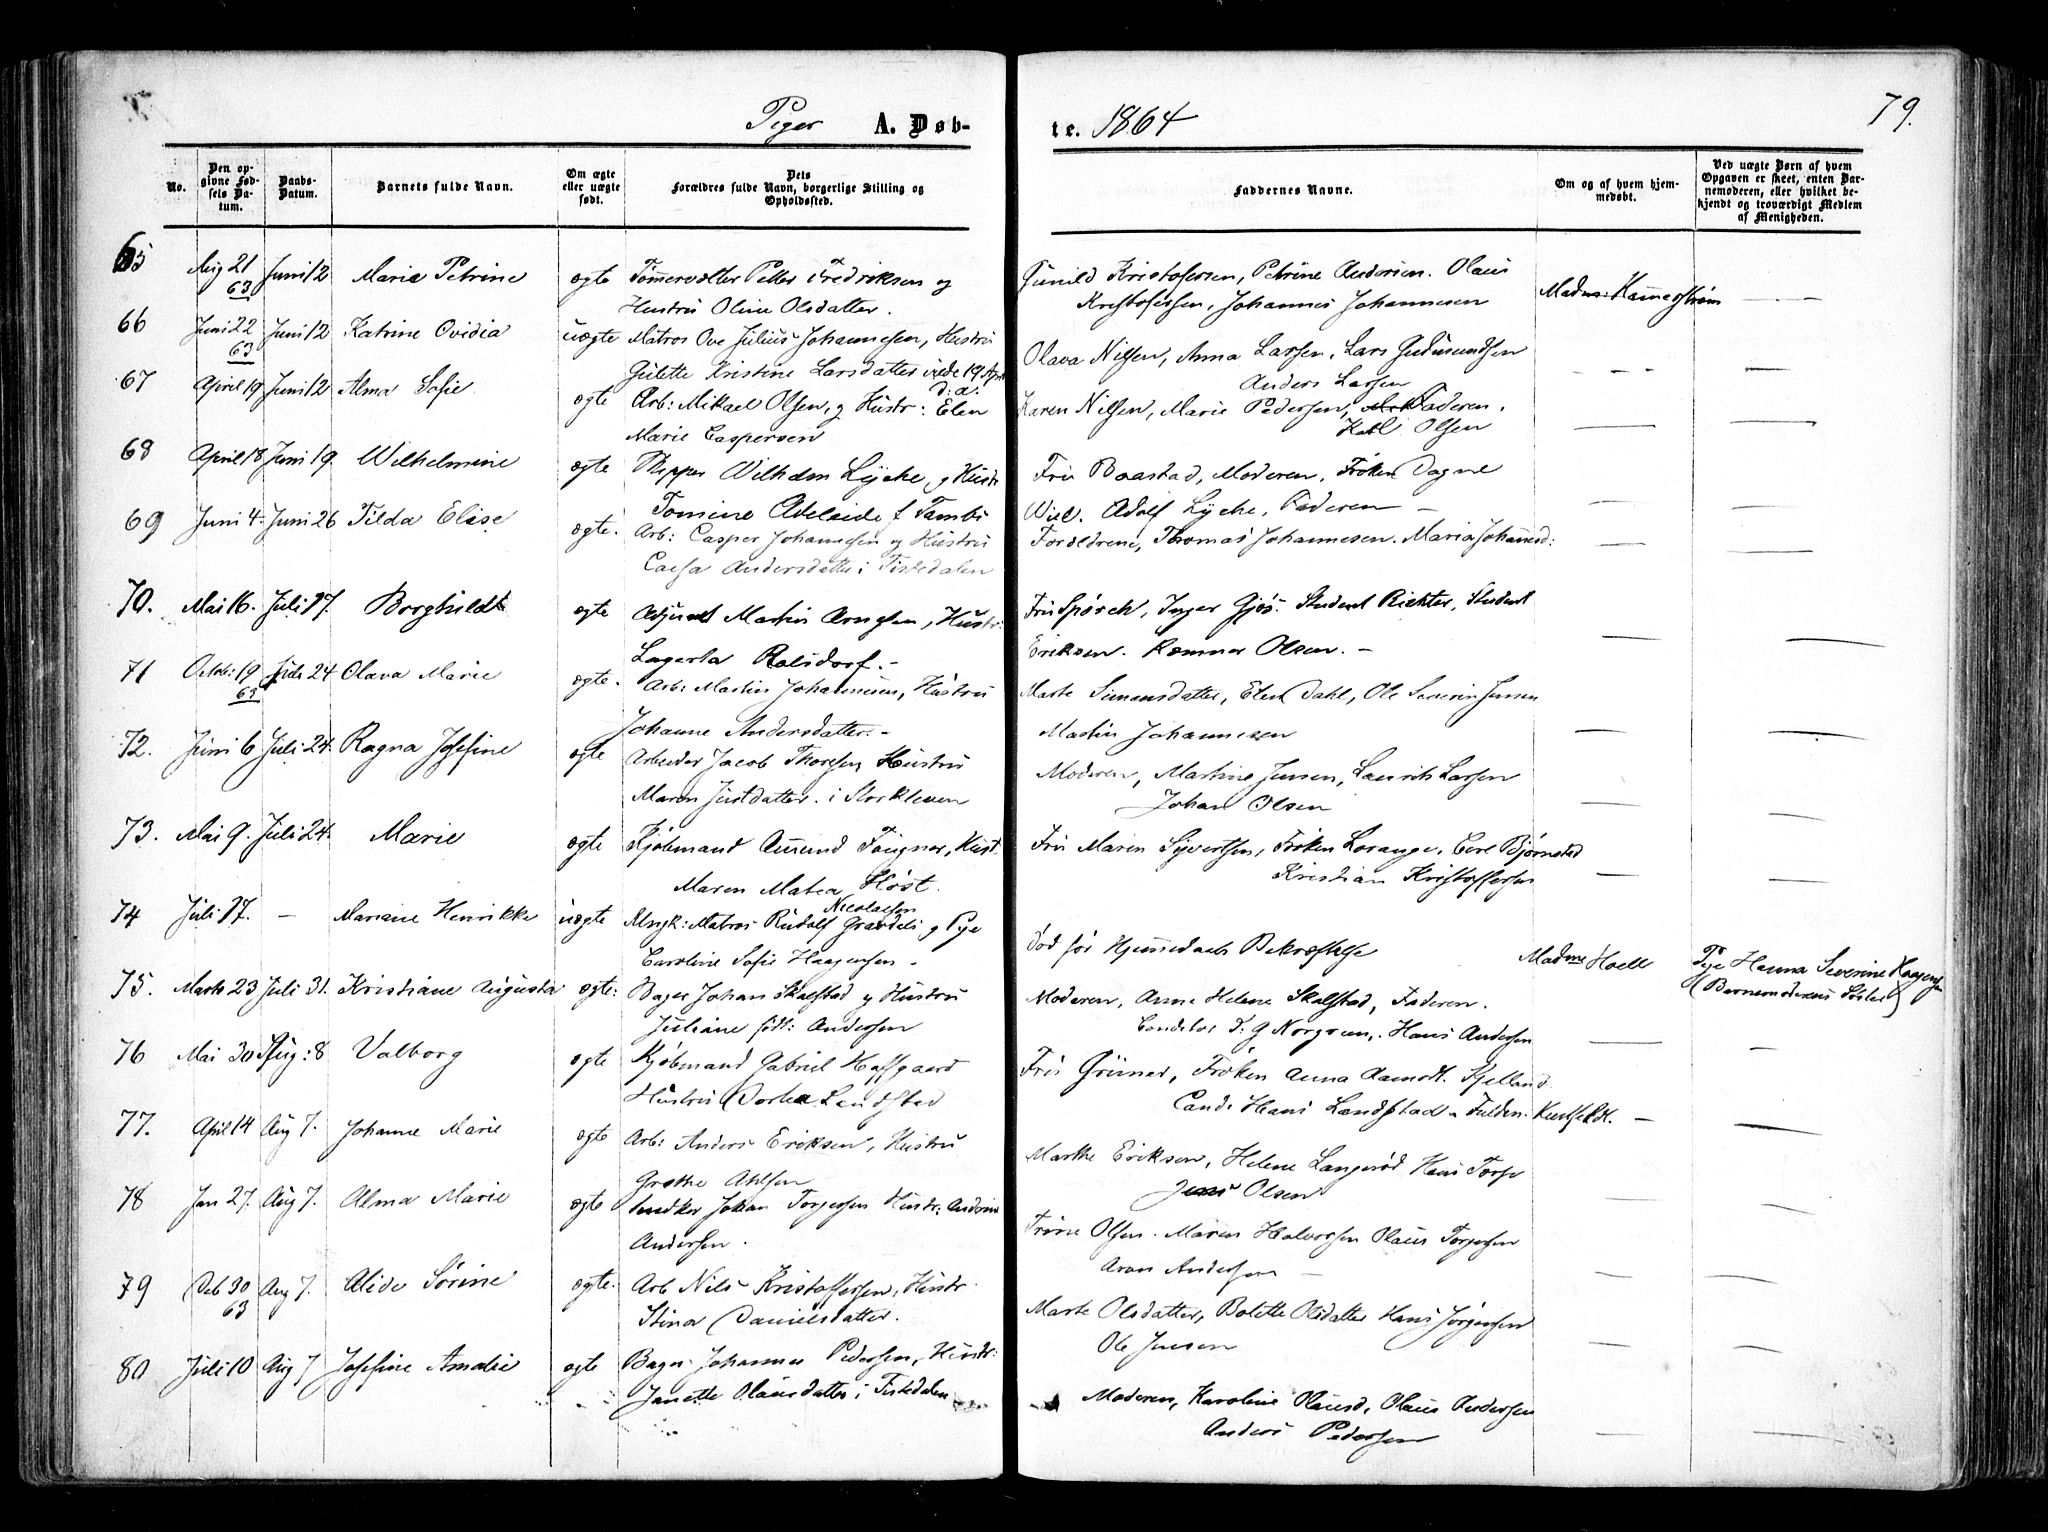 79.
Piger A. Døb-
te. 1864
No.
Den opgivne Fødsels Datum.
Daabs-Datum.
Barnets fulde Navn.
Om ægte eller uægte født.
Dets Forældres fulde Navn, borgerlige Stilling og Opholdssted.
Faddernes Navne.
Om og af hvem hjemmedøbt.
Ved uægte Børn af hvem Opgaven er skeet, enten Barnemoderen, eller hvilket bekjendt og troværdigt Medlem af Menigheden.
65 Aug 21 63 Juni 12 Maria Petrine ægte Petter Fredriksen og
Hustru Oline Olsdatter.
Gunild Kristofersen, Petrine Andersen. Olaus
Kristofersen, Johannes Johannesen
66 Juni 22 63 Juni 12 Katrine Ovidia uægte Matros Ove Julius Johannesen, Hustru
Gulette Kristine Larsdatter viede 19 Apr
d: a:
Olava Nilsen, Anna Larsen, Lars Gudmundsen
Anders Larsen
67 April 19 Juni 12 Alma Sofie ægte Arb: Mikael Olsen, og Hustr: Elen
Marie Caspersen
Karen Nilsen, Marie Pedersen, Faderen.
Karl Olsen
68 April 18 Juni 19. Wilhelmine ægte Skipper Wilhelm Lyche, og Hustr
Tomine Adelaide f Tambs
Fru Baastad, Moderen, Frøken Dagne
Wiel. Adolf Lyche, Faderen –
69 Juni 4. Juni 26 Tilda Elise ægte. Arb: Casper Johannesen og Hustru
Caesa Andersdatter i Tistedalen
Forældrene, Thomas Johannesen. Maria Johannesd:
70. Mai 16. Juli 17. Borghildt ægte Adjunct Martin Arnesen, Hustr:
Lagerta Rolsdorf. –
Fru Spørck, Inger Gjøs. Student Richter, Student
Eriksen. Kæmner Olsen. –
71 Octob: 19 63 Juli 24 Olava Marie ægte. Arb: Martin Johannesen, Hustru
Johanne Andersdatter. –
Marte Simonsdatter, Elen Dahl, Ole Severin Jensen
Martin Johannesen
72. Juni 6 Juli 24. Ragna Josefine ægte Arbeider Jacob Thoresen Hustru
Maren Justdatter. i Storkleven
Moderen, Martine Jensen, Laurits Larsen
Johan Olsen
73. Mai 9. Juli 24. Marie ægte Kjøbmand Amund Fougner, Hust.
Maren Matea Høst.
Fru Maren Syvertsen, Frøken Lorange, Carl Bjørnstad
Kristian Kristoffersen
74 Juli 17. – Mariane Henrikke uægte Ungk: Matros Rudolf Nicolaisen og Pige
Caroline Sofie Haagensen –
Død før Hjemmedaabs Bekræftelse
Madme Hoell
Pige Hanna Severine Haagensen
(Barnemoderens Søster)
75. Marts 23 Juli 31. Kristiane Augusta ægte: Bager Johan Skolstad og Hustru
Juliane født: Andersen
Moderen, Anne Helene Skolstad, Faderen.
Conditor Norgreen, Hans Andersen
76 Mai 30 Aug: 8 Valborg ægte Kjøbmand Gabriel Hofgaard
Hustru Dorthea Landstad
Fru Grüner, Frøken Anna Aamodt. Kjelland
Cand. Hans Landstad
77. April 14 Aug 7. Johanne Marie ægte Arb: Anders Eriksen, Hustru
Grethe Ahlsen
Marthe Eriksen, Helene Langerød Hans Torp
Jens Olsen
78 Jan 27. Aug 7. Alma Marie ægte Snedker Johan Torgersen Hustr: Andrine
Andersen.
Trine Olsen. Maren Halvorsen Olaus Torgersen
Aron Andersen –
79 Deb 30 63 Aug 7. Alide Sørine ægte. Arb Nils Kristoffersen, Hustr
Stina Danielsdatter.
Marte Olsdatter, Bolette Olsdatter Hans Jørgensen
Ole Jensen
80 Juli 10 Aug 7 Josefine Amalie ægte Bager Johannes Pedersen, Hustr:
Janette Olausdatter i Tistedalen
Moderen, Karoline Olausd, Olaus Andersen
Anders Pedersen